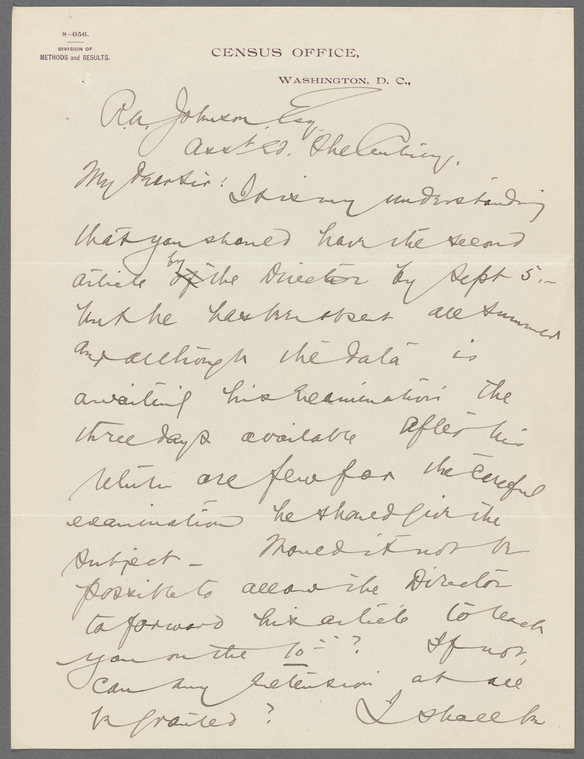 8-056.
DIVISION OF
METHODS and RESULTS.
CENSUS OFFICE,
WASHINGTON, D. C.,
R. U. Johnson, Esq.
Asst. Ed. The Century,
My Dear Sir: It is my understanding
that you should have the second
article of by the Director by Sept 5.—
but he has been absent all summer
and although the data is
awaiting his examination the
three days available after his
return are few for the careful
examination he should give the
subject — Would it not be
possible to allow the Director
to forward his article to reach
you on the 10"? If not,
can any extension at all
be granted? I shall be